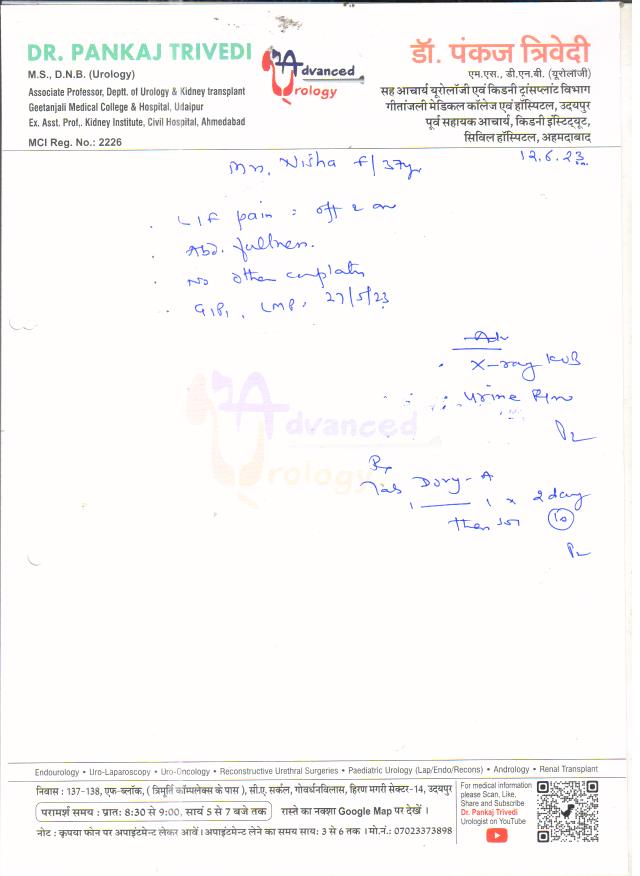 DR. PANKAJ TRIVEDI
M.S., D.N.B. (Urology)
Associate Professor, Deptt. of Urology & Kidney transplant
Geetanjali Medical College & Hospital, Udaipur
Ex. Asst. Prof,. Kidney Institute, Civil Hospital, Ahmedabad
MCI Reg. No.: 2226
Advanced
Urology
डॉ. पंकज त्रिवेदी
एम.एस., डी.एन.बी. (यूरोलॉजी)
सह आचार्य यूरोलॉजी एवं किडनी ट्रांसप्लांट विभाग
गीतांजली मेडिकल कॉलेज एवं हॉस्पिटल, उदयपुर
पूर्व सहायक आचार्य, किडनी इंस्टिट्यूट,
सिविल हॉस्पिटल, अहमदाबाद
12.6.23
Mrs. Nisha F/37yr
LIF pain : off & on
Abd. fullness.
No other complaints
G1P1, LMP: 27/5/23
Adv
X-ray KUB
Urine R/m
Advanced
Urology
Rx
Tab
1 — 1 x 2 day
then SOS 10
Endourology • Uro-Laparoscopy • Uro-Oncology • Reconstructive Urethral Surgeries • Paediatric Urology (Lap/Endo/Recons) • Andrology • Renal Transplant
निवास : 137-138, एफ-ब्लॉक, ( त्रिमूर्ति कॉम्पलेक्स के पास ), सी.ए. सर्कल, गोवर्धनविलास, हिरण मगरी सेक्टर-14, उदयपुर
परामर्श समय : प्रातः 8:30 से 9:00, सायं 5 से 7 बजे तक रास्ते का नक्शा Google Map पर देखें ।
नोट : कृपया फोन पर अपाइंटमेन्ट लेकर आवें । अपाइंटमेन्ट लेने का समय सायः 3 से 6 तक । मो.नं.: 07023373898
For medical information
please Scan, Like,
Share and Subscribe
Dr. Pankaj Trivedi
Urologist on YouTube